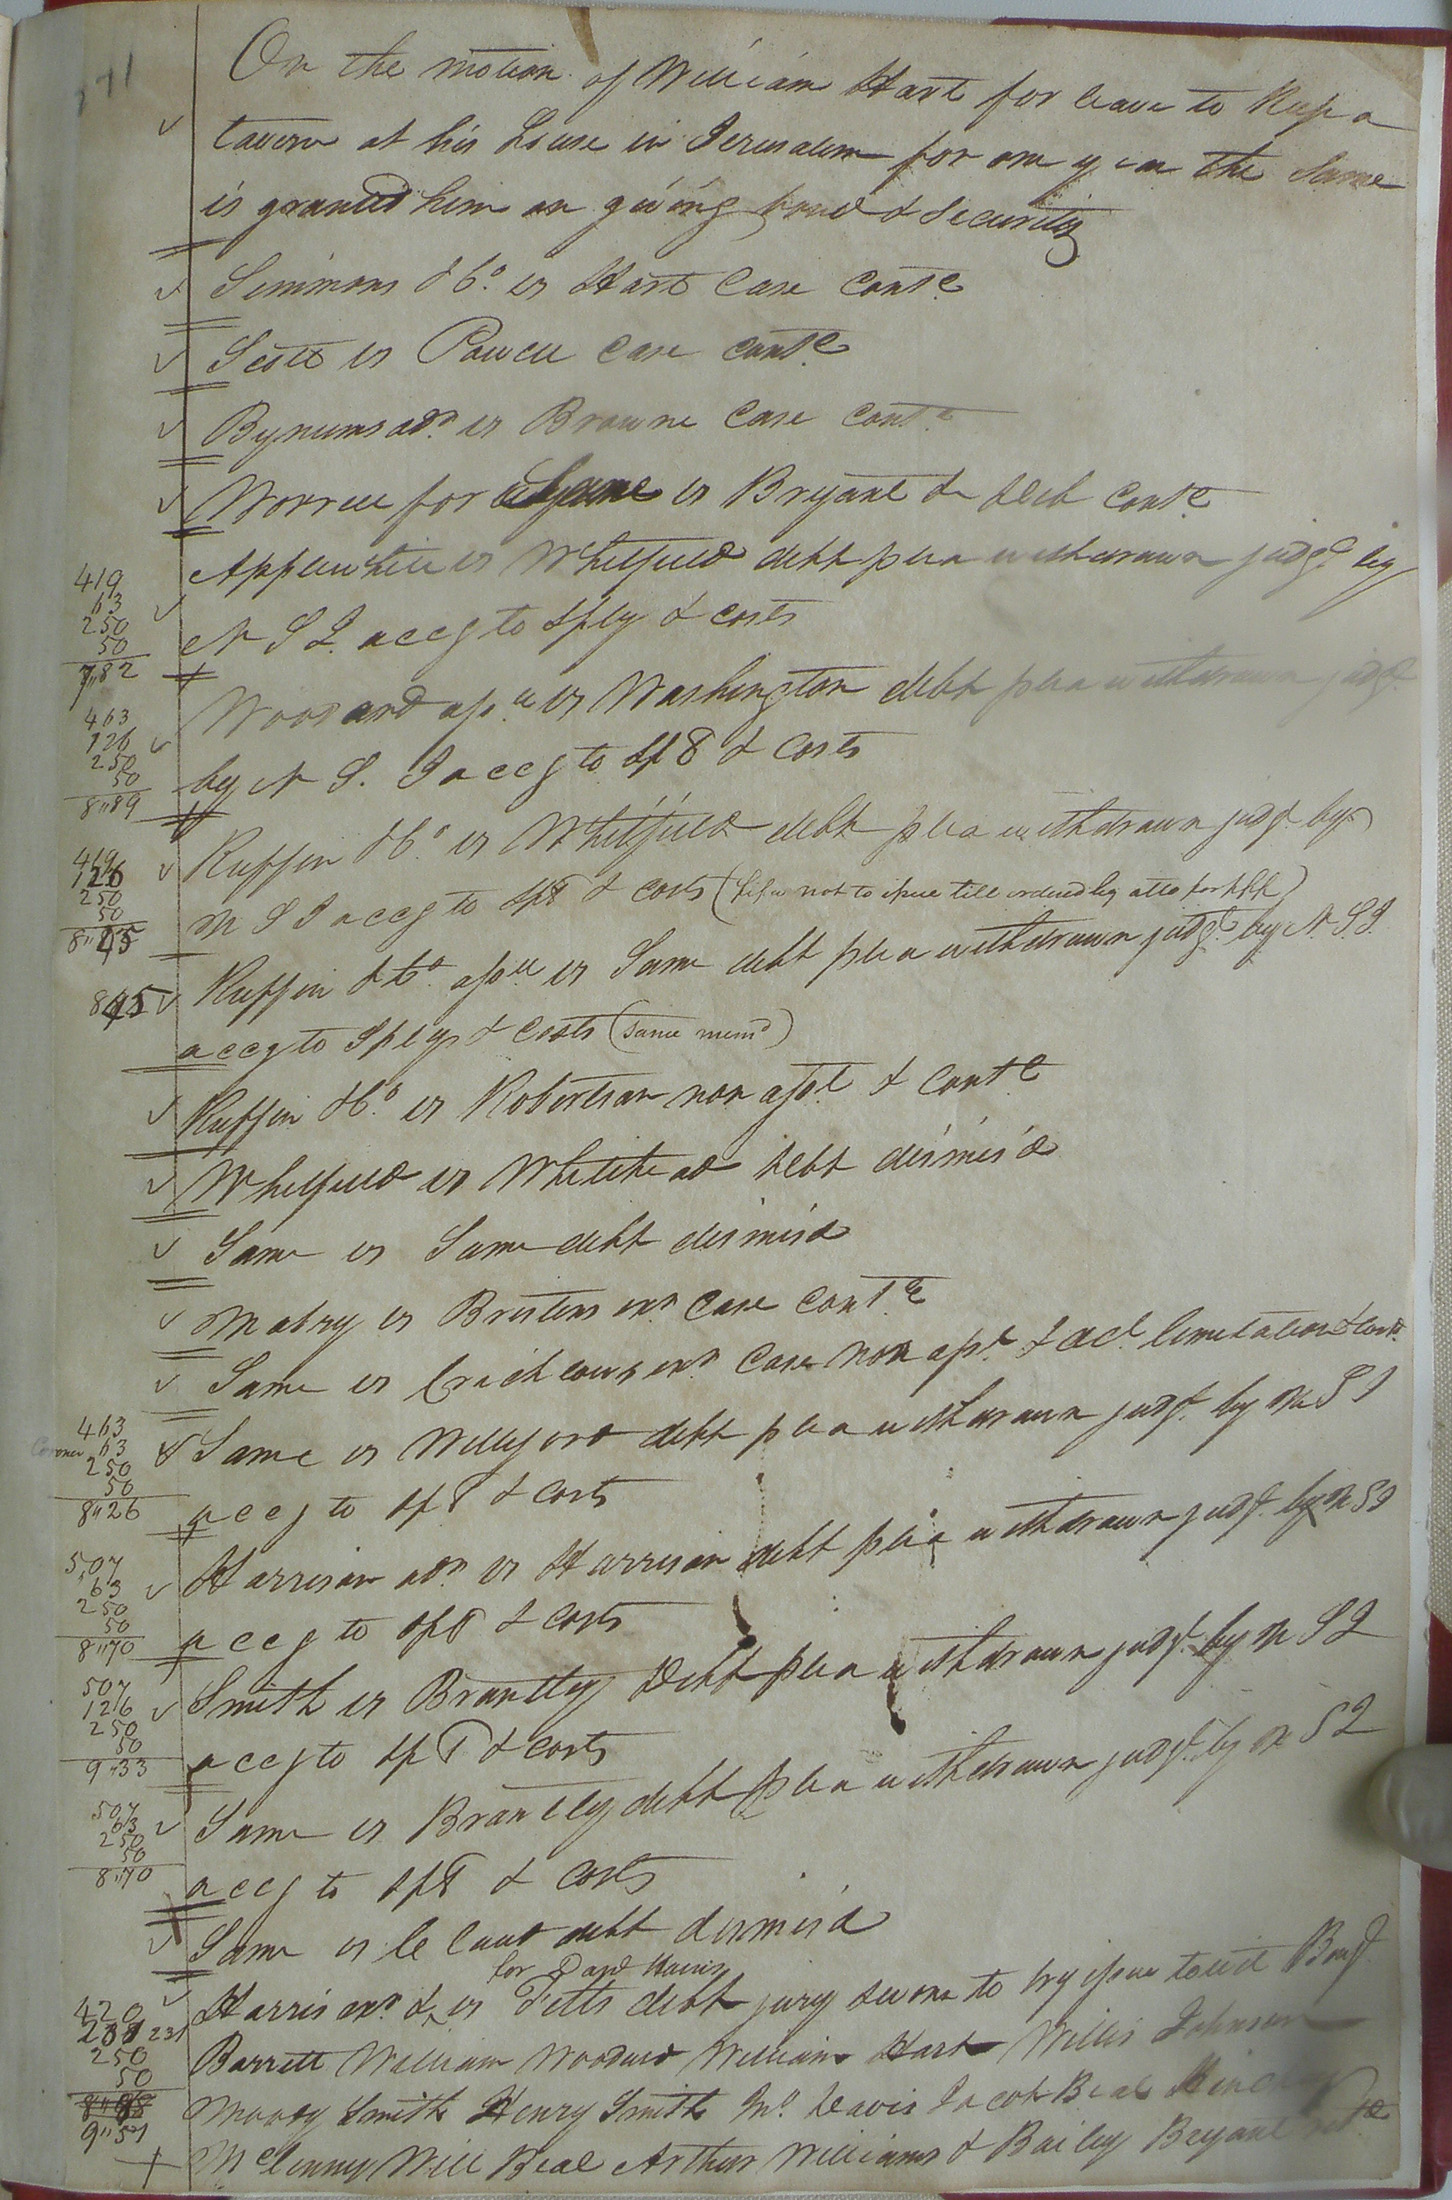 On the motion of William Hart for leave to Keep a
tavern at his House in Jerusalem for one year the Same
is granted him on giving bond & Security
Simmons & Co. vs Hart Case Contd.
Scott vs Powell Case Contd.
Bynums adr. vs Browne Case Contd.
Worrell for vs Bryant & debt Contd.
419
63
250
50
7"82
Applewhite vs Whitfield debt plea withdrawn judgt. by
N S I. accg to Sply & costs
463
126
250
50
8"89
Woodard apee vs Washington debt plea withdrawn judgt.
by N S. I accg to Sp & Costs
419
126
250
50
8"45
Ruffin & Co. vs Whitfield debt plea withdrawn judgt. by
N S I accg to & costs (fifa not to issue till ordered by atto for plff)
845
Ruffin & Co. apee vs Same debt plea withdrawn judgt. by N. S I.
accg to Splys & Costs (same memo)
Ruffin & Co. vs Robertson non apt. & Contd.
Whitfield vs Whitehead debt dismis'd
Same vs Same debt dismisd
Mabry vs Brittons exr Case Contd.
Same vs Crichlows exr Case non apt. & act. limitation & Contd.
Coroner
463
63
250
50
8"26
Same vs Williford debt plea withdrawn judgt. by N S I
accg to & costs
507
63
250
50
8"70
Harrison adr. vs Harrison debt plea withdrawn judgt. by N S I
accg to & costs
507
126
250
50
9"33
Smith vs Brantley Debt plea withdrawn judgt. by N S I
accg to & costs
507
63
250
50
8"70
Same vs Brantley debt plea withdrawn judgt. by N S I
accg to & costs
Same vs debt dismis'd
for David Harris
420
231
250
50
9"51
Harris exr. & vs Fitts debt jury sworn to try issue towit Benjt.
Barrett William Woodard William Hart Willis Johnson
Moody Smith Henry Smith Jno. Deavis Jacob Beal
McLenny Will Beal Arthur Williams & Bailey Bryant